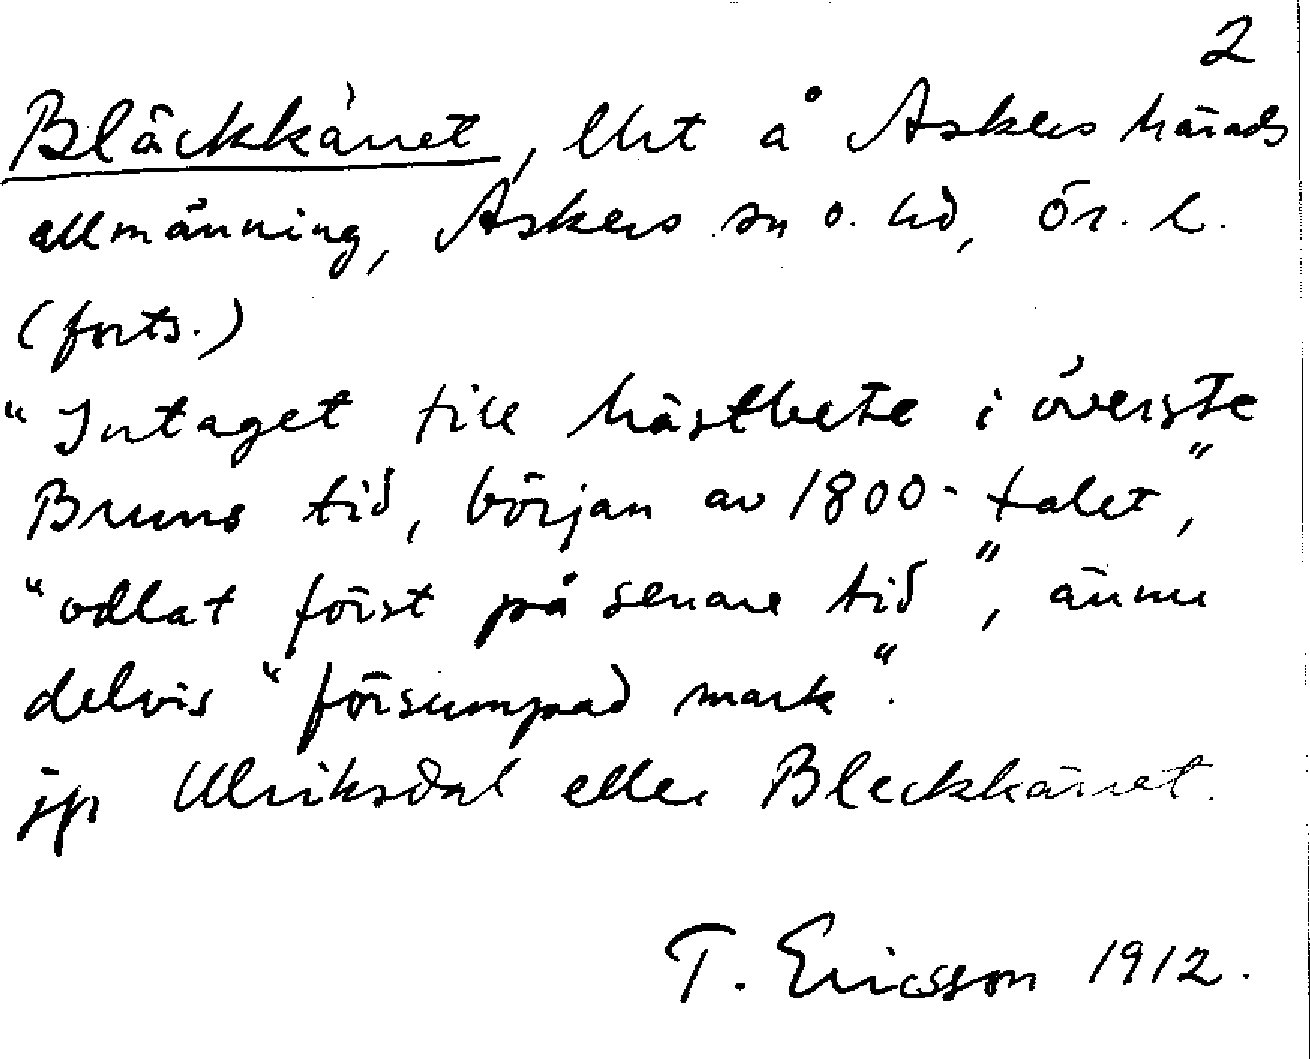 2
Bläckkärret, lht å Askers härads
allmänning, Askers sn o. hd, Ör. l.
(forts.)
"Intaget till hästbete i överste
Bruns tid, början av 1800-talet",
"odlat först på senare tid", ännu
delvis "försumpad mark".
jfr Ulriksdal eller Bleckkärret.
T. Ericsson 1912.